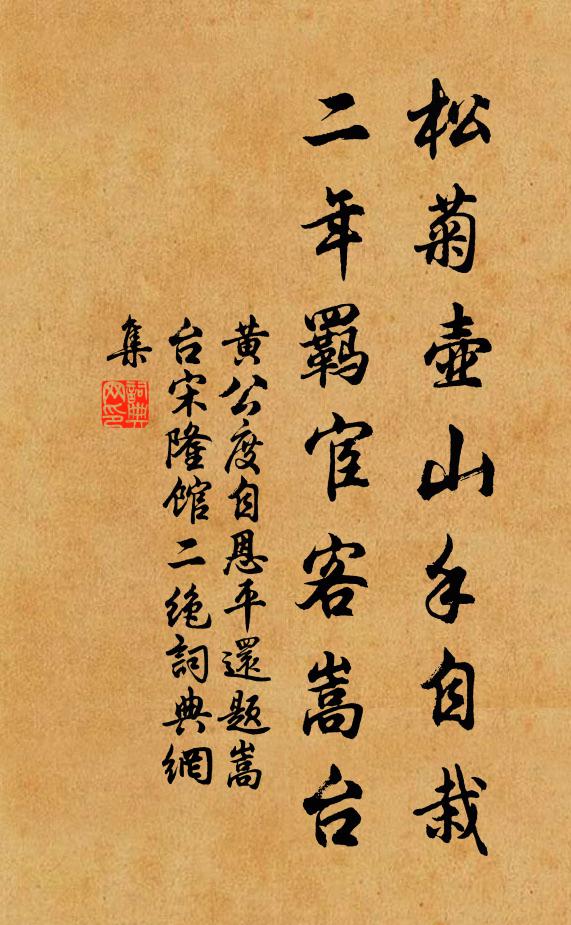 松菊壺山手自栽
二年羁宦客嵩台
黄公度自恩平還題嵩
台宋隆館二绝詞典網
集
詞典
网印